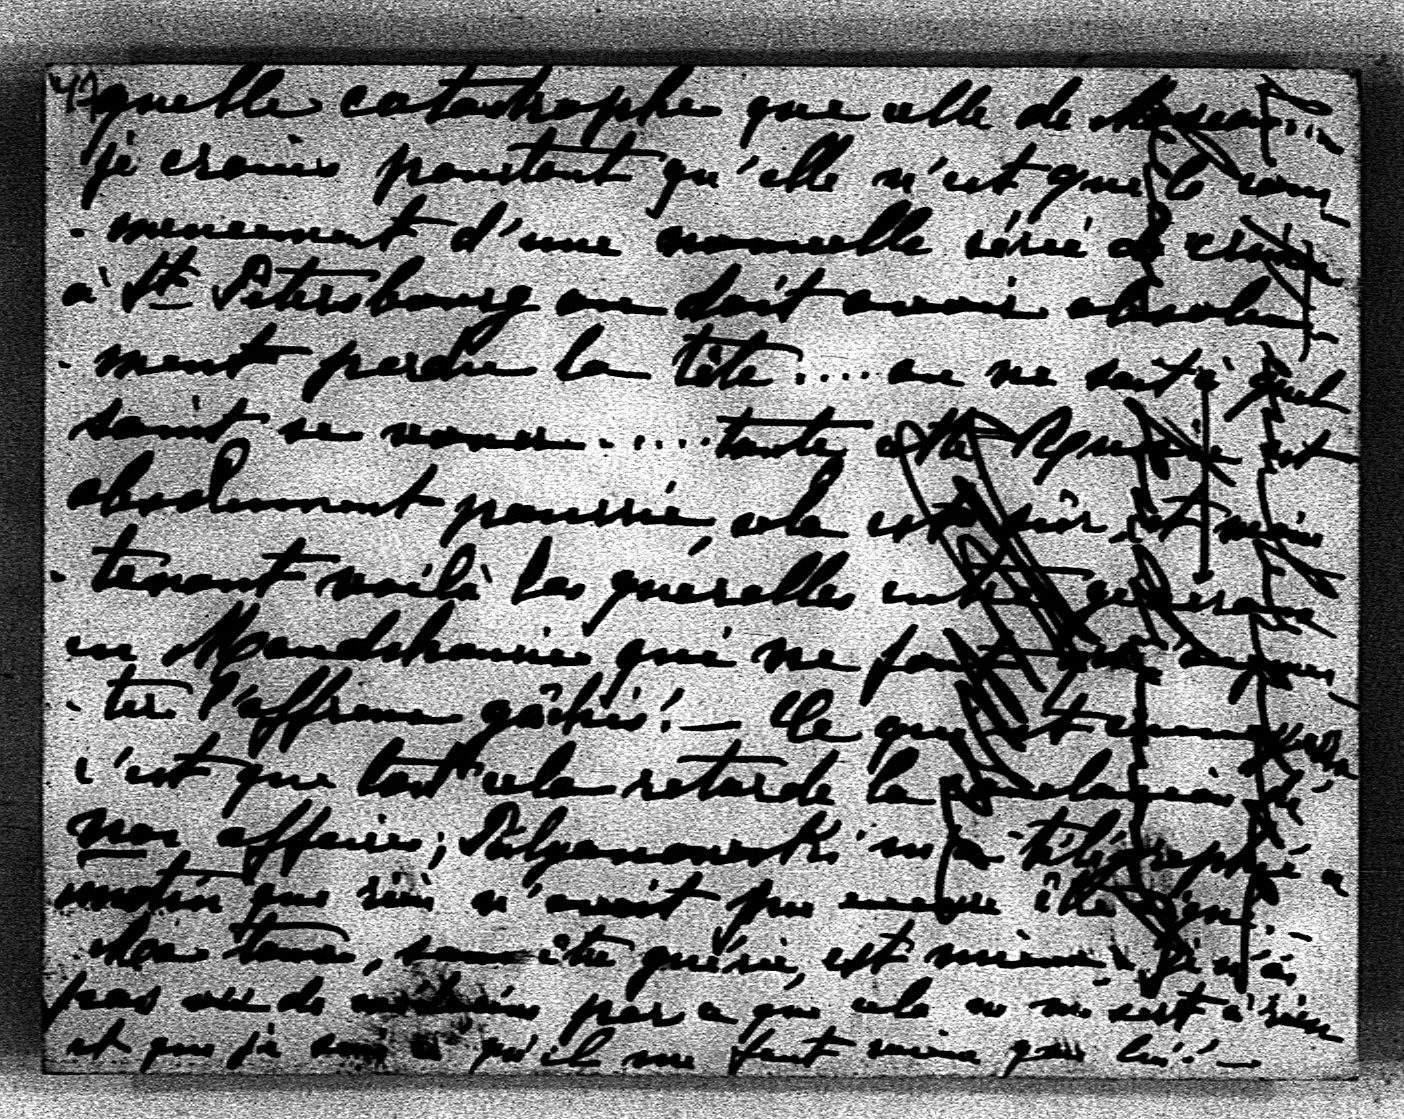 47 quelle catastrophe que celle de Moscou....
je crains pourtant qu'elle n'est que le com
- mencement d'une nouvelle série de crimes
à St Pétersbourg on doit avoir absolu -
- ment perdu la tête..... on ne sait à quel
saint se vouer ..... toute cette Russie est
absolument pourrie, cela est sûr, et main
- tenant voilà les quérelles entre généraux
en Mandchourie qui ne font que augmen
- ter l'affreux gâchis! — Ce qui est
c'est que tout cela retarde la conclusion de
nos affaires; m'a télégraphié ce
matin que rien n'avait pu encore être signé. -
Ma toux, sans être guérie, est mieux, je n'ai
pas vu de médecins parce que cela ne me sert à rien
et que je sais ce qu'il me faut mieux que lui! —